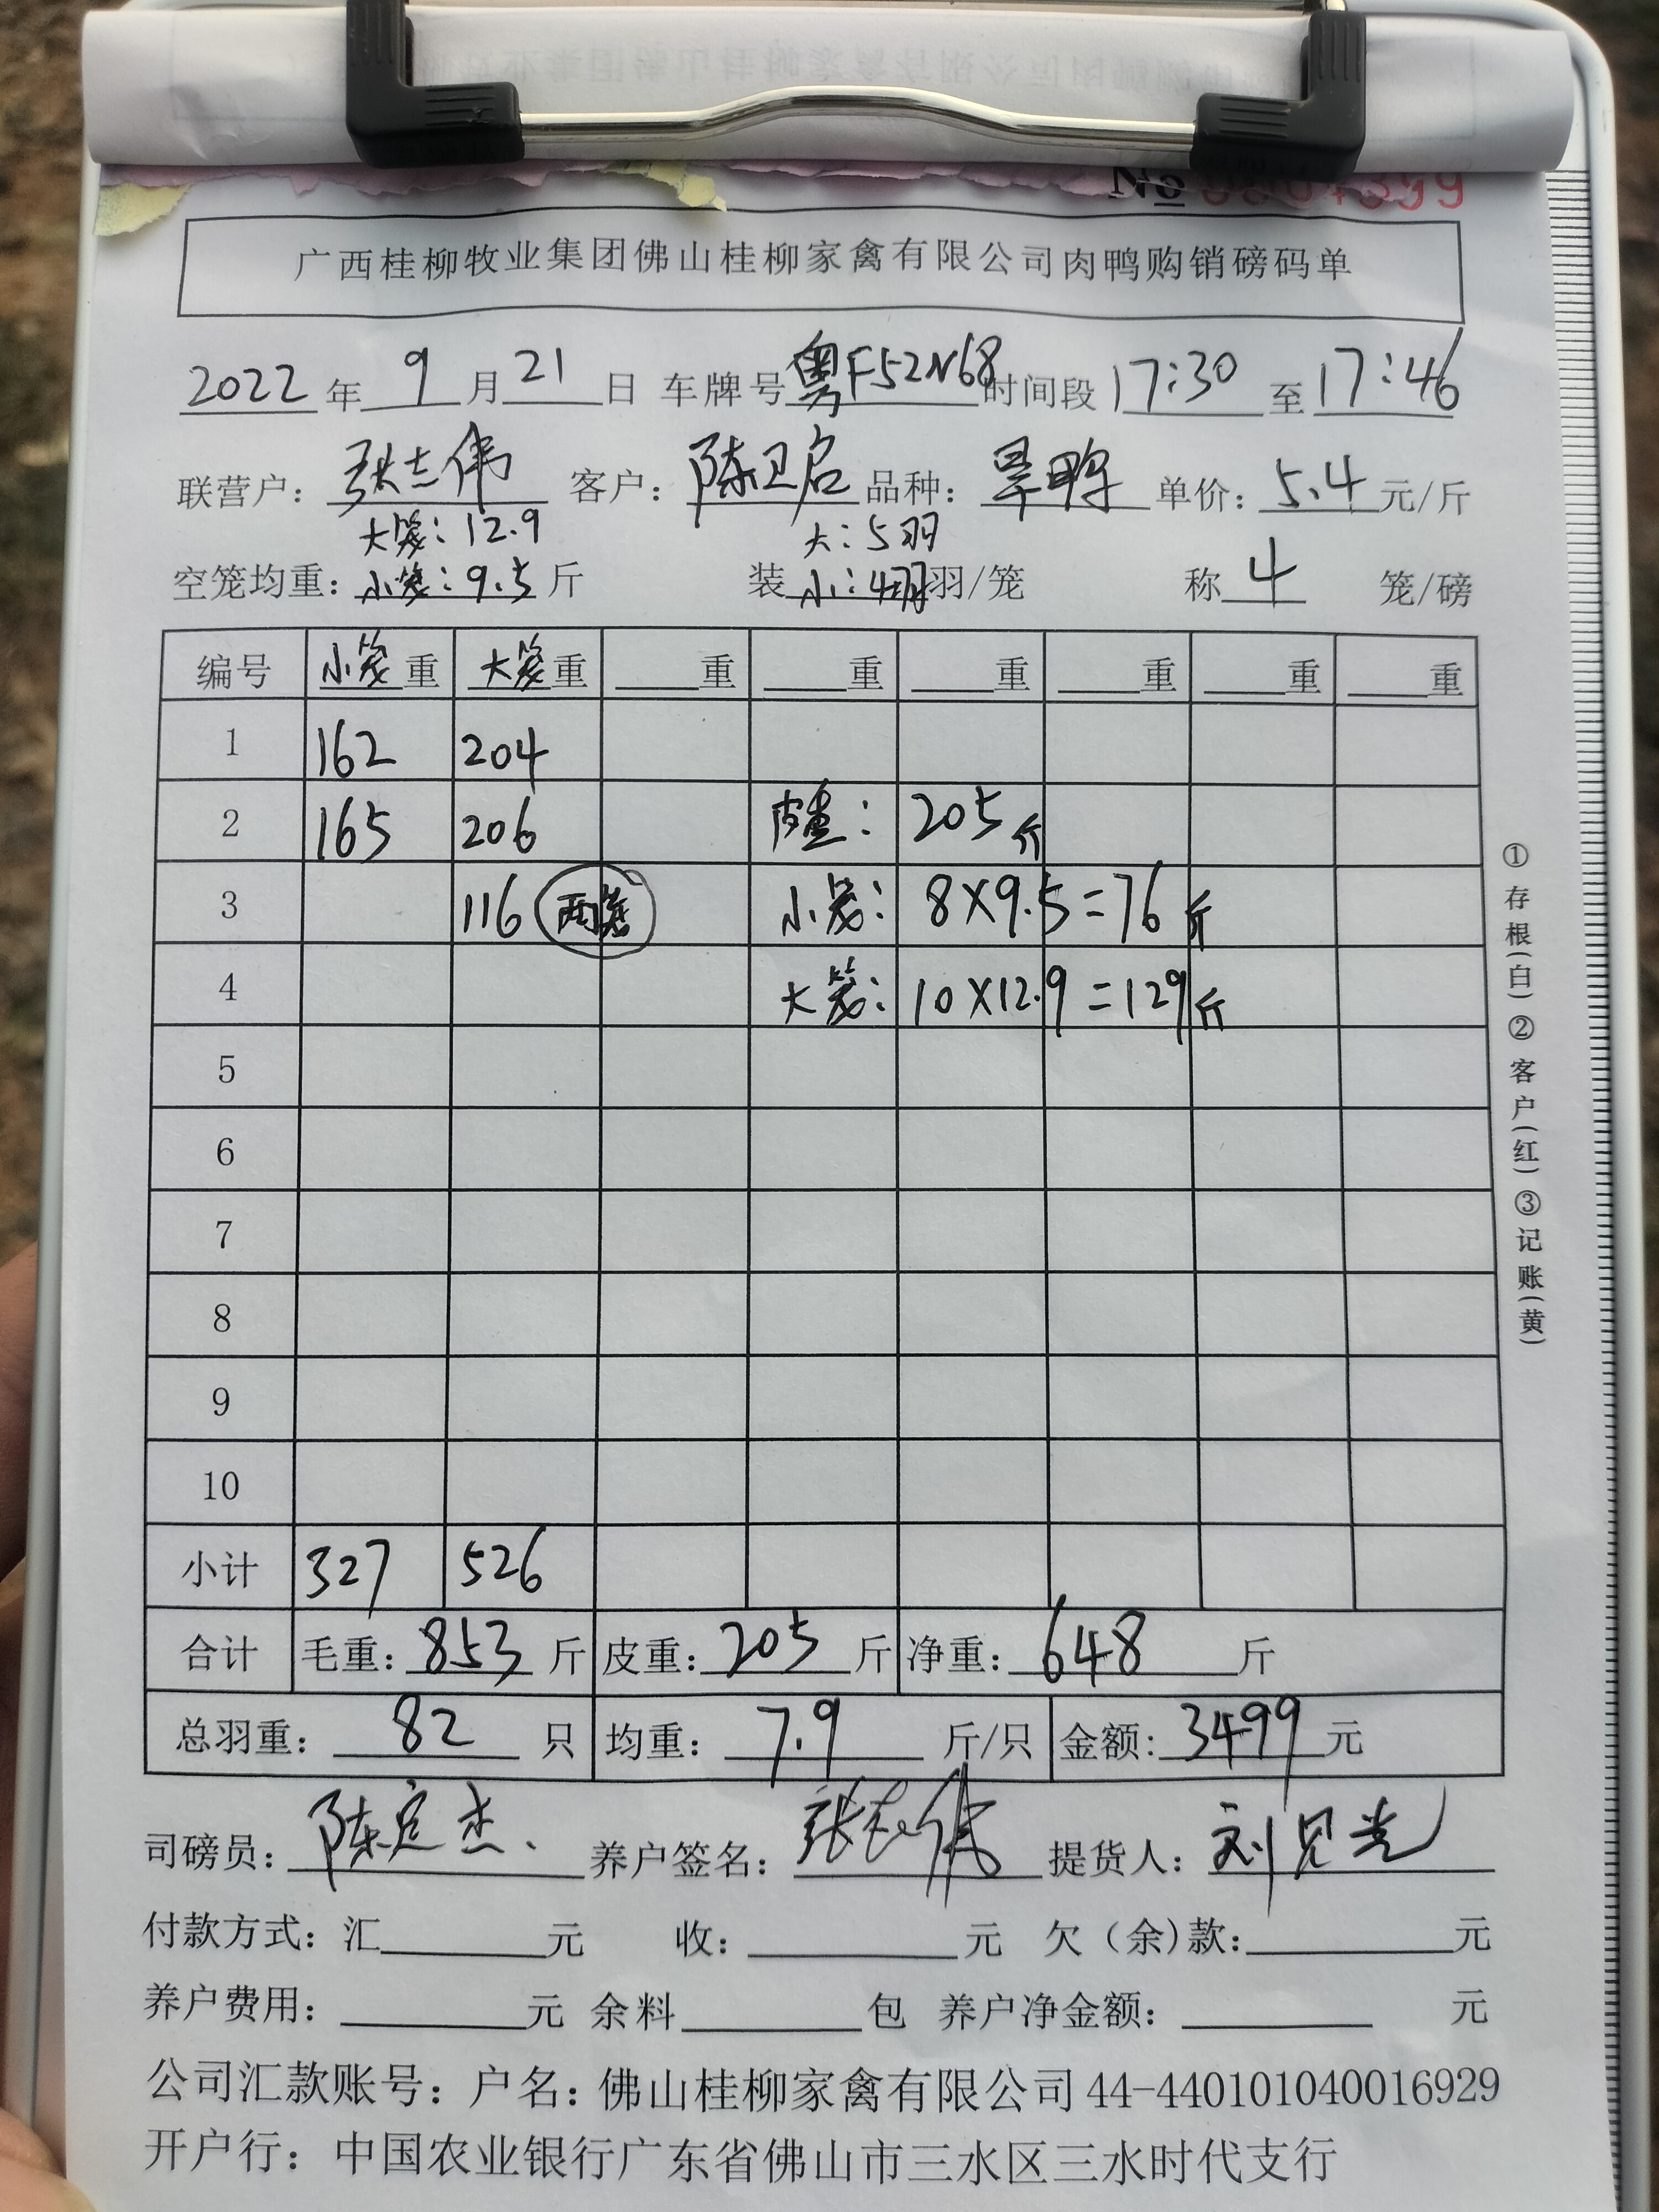 No
广西桂柳牧业集团佛山桂柳家禽有限公司肉鸭购销磅码单
2022 年 9 月 21 日 车牌号 粤F52N68 时间段 17:30 至 17:46
联营户: 张志伟 客户: 陈卫启 品种: 旱鸭 单价: 5.4 元/斤
大笼: 12.9 大: 5羽
空笼均重: 小笼: 9.5 斤 装 小: 4羽 羽/笼 称 4 笼/磅
编号 小笼重 大笼重 重 重 重 重 重 重
1 162 204
2 165 206 皮重: 205斤
3 116 两笼 小笼: 8×9.5=76斤
4 大笼: 10×12.9=129斤
5
6
7
8
9
10
小计 327 526
合计 毛重: 853 斤 皮重: 205 斤 净重: 648 斤
总羽重: 82 只 均重: 7.9 斤/只 金额: 3499 元
司磅员: 陈定杰. 养户签名: 张志伟 提货人: 刘见光
付款方式: 汇 元 收: 元 欠(余)款: 元
养户费用: 元 余料 包 养户净金额: 元
公司汇款账号: 户名: 佛山桂柳家禽有限公司 44-440101040016929
开户行: 中国农业银行广东省佛山市三水区三水时代支行
①存根(白)②客户(红)③记账(黄)